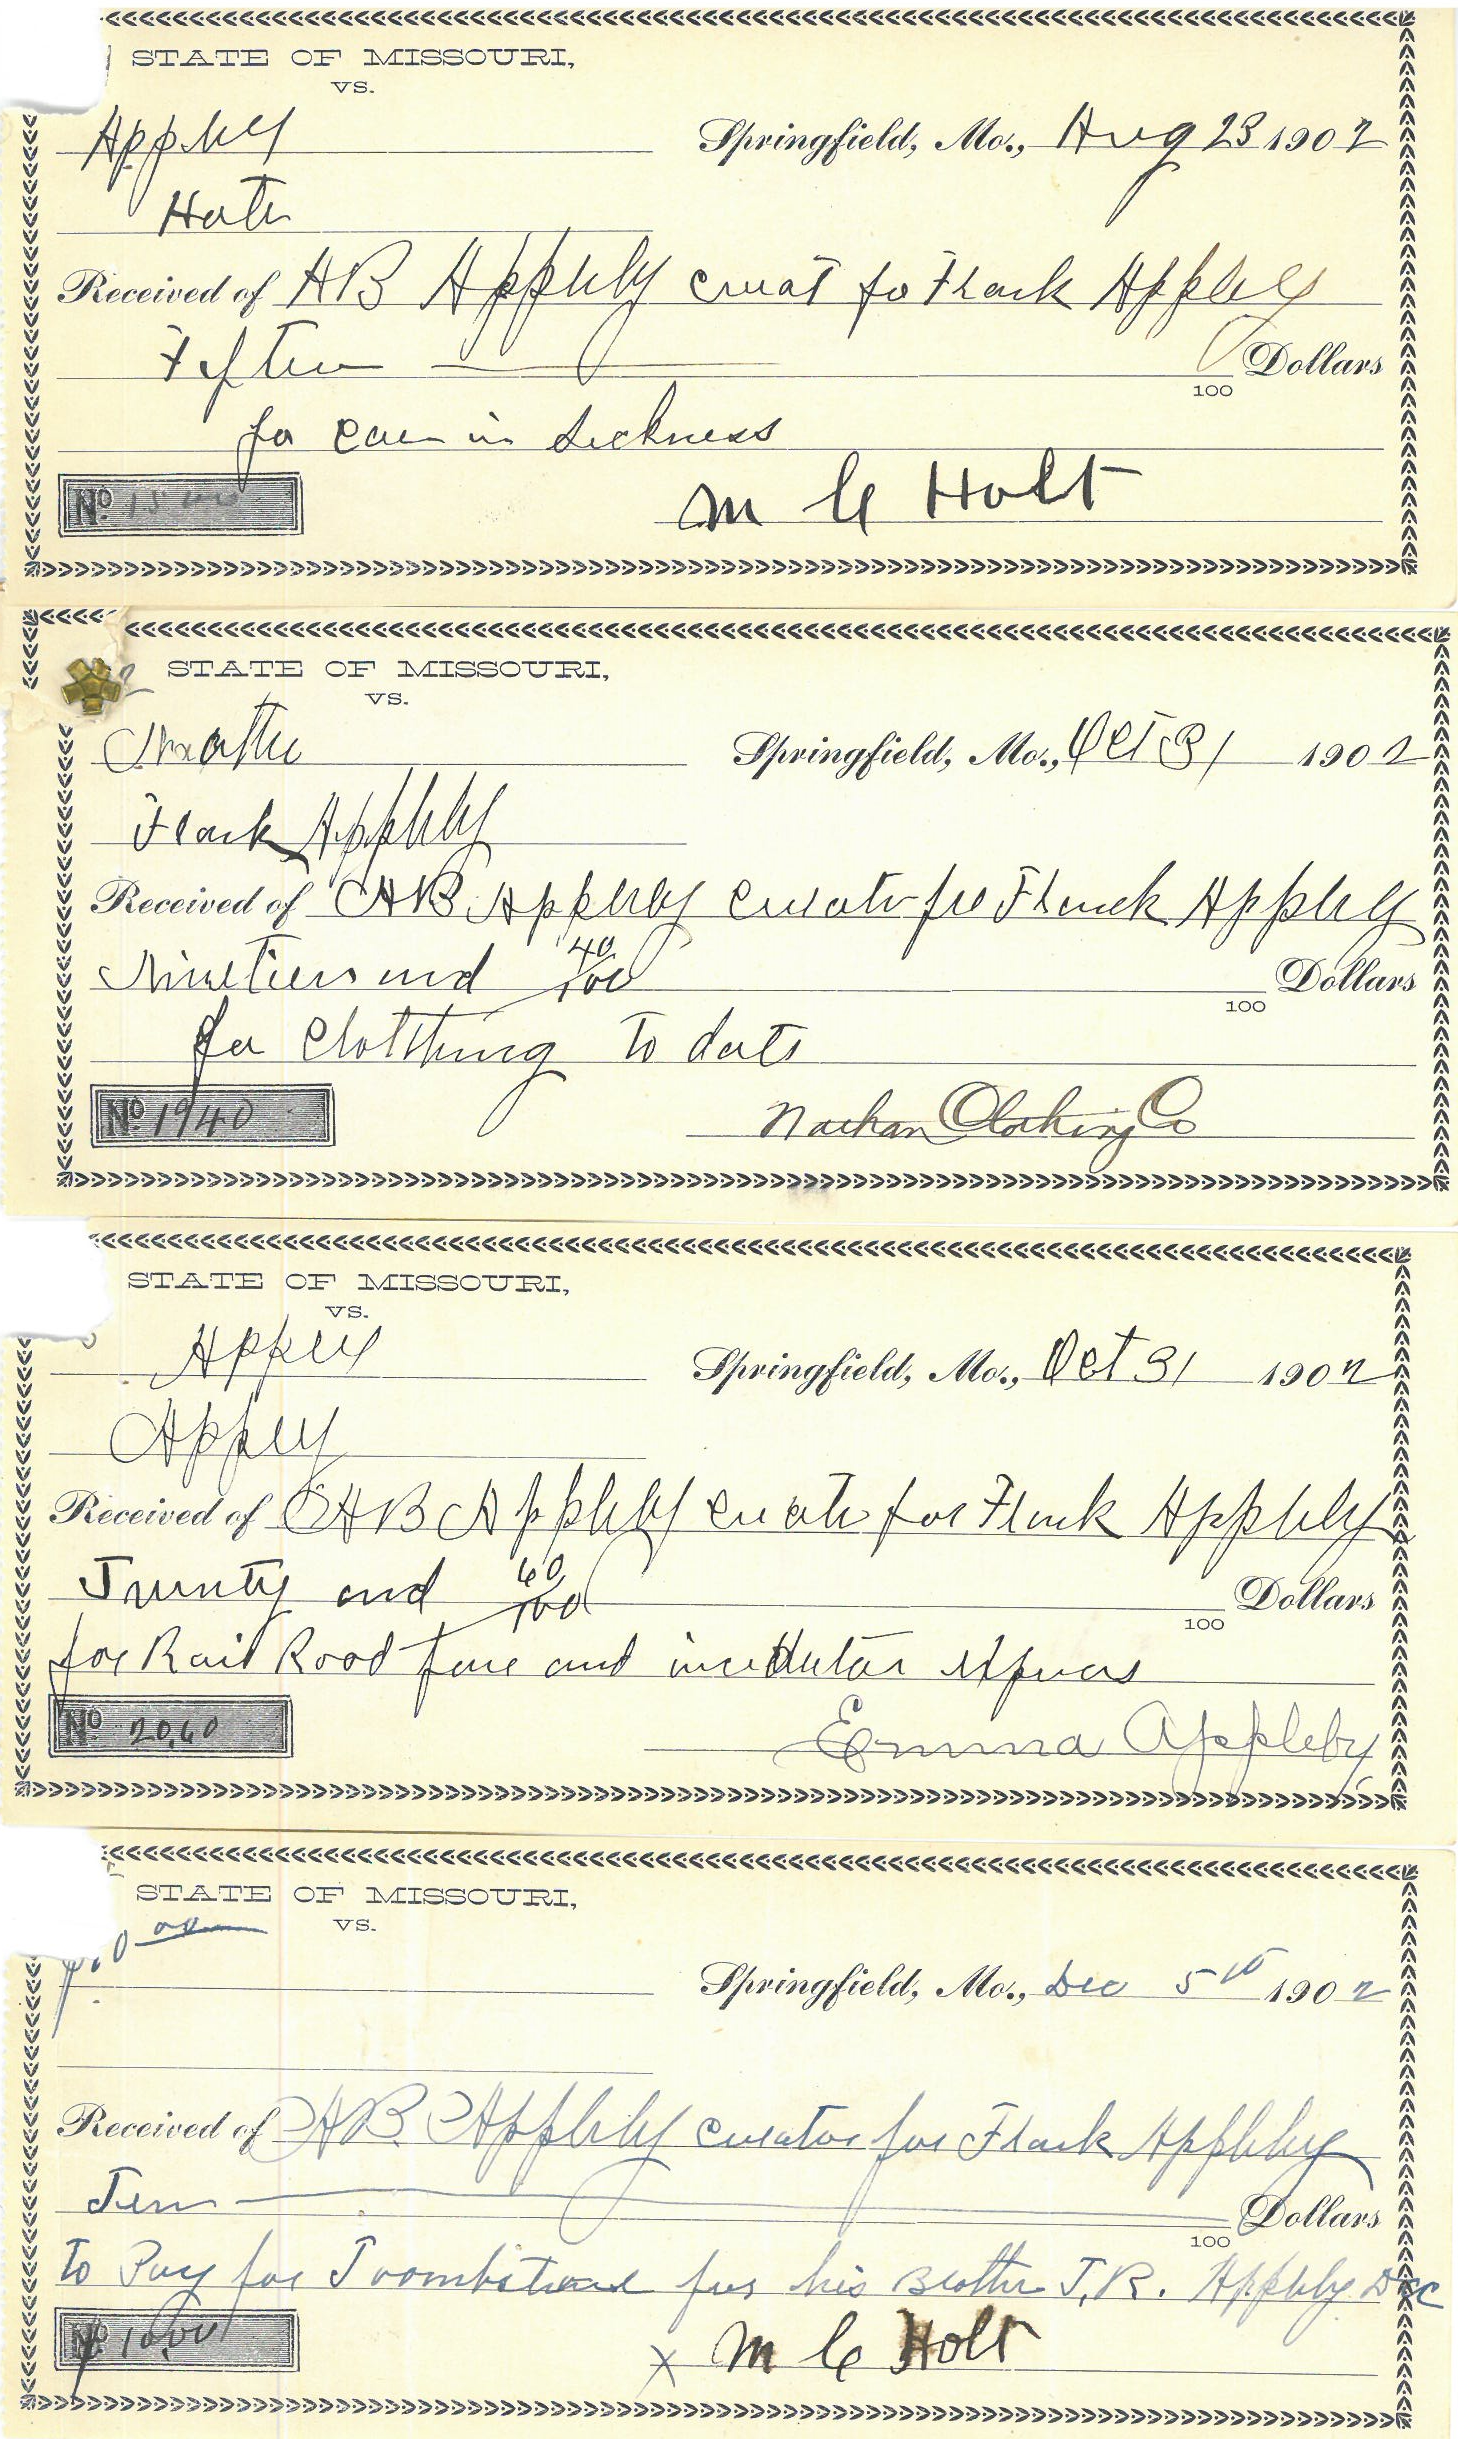 STATE OF MISSOURI,
VS.
Appley
Springfield, Mo., Aug 23 1902
Holt
Received of AB Appleby curat fo Flack Appleby
Fiften
100 Dollars
for care in sickness
No 1500
M C Holt
STATE OF MISSOURI,
VS.
Springfield, Mo., Oct 31 1902
Flack Appleby
Received of AB Appleby curator for Flack Appleby
Nineteen and 40/100
100 Dollars
for Clothing to date
No 1940
Nathan Clothing Co
STATE OF MISSOURI,
VS.
Appley
Springfield, Mo., Oct 31 1902
Appley
Received of AB Appleby curator for Flack Appleby
Twenty and 60/100
100 Dollars
for Rail Road fare and expens
No 20,60
Emma Appleby
STATE OF MISSOURI,
VS.
Springfield, Mo., Dec 5th 1902
Received of AB. Appleby curator for Flack Appleby
Ten
100 Dollars
To Pay for Toombstone for his Brother J.R. Appleby Dec
No 10,00
x M C Holt